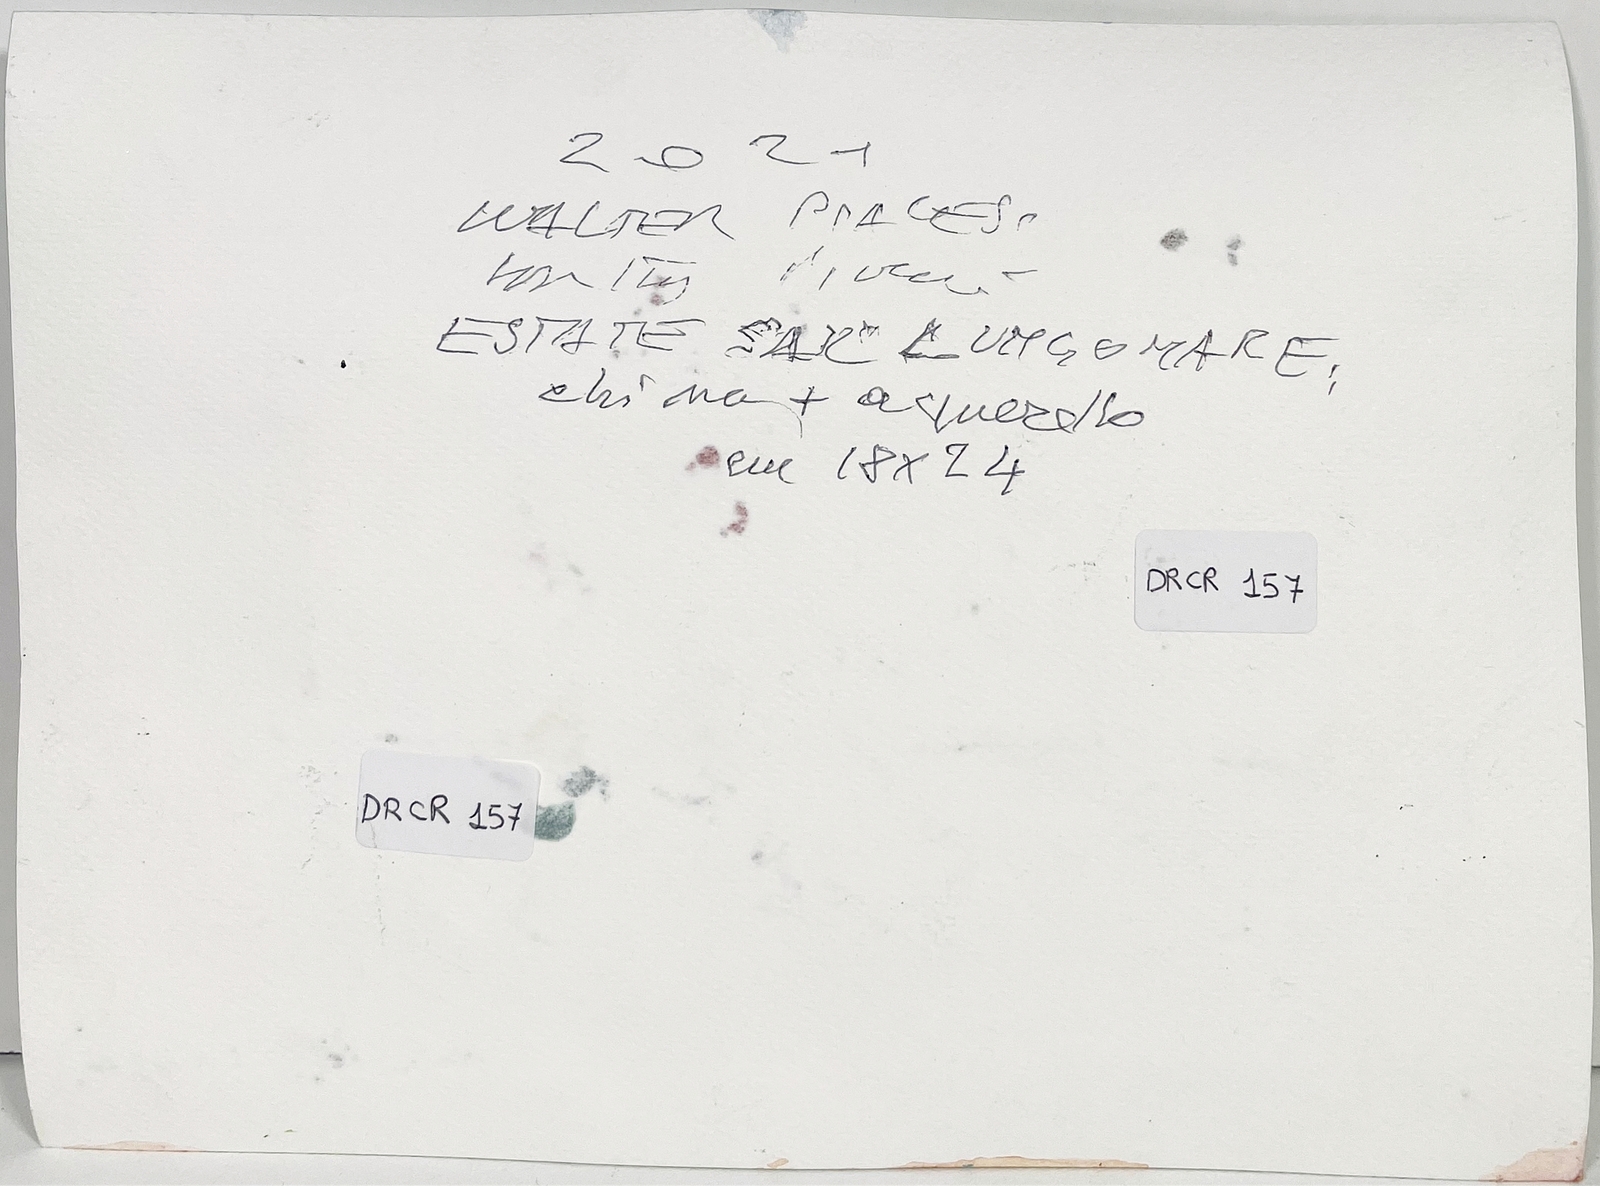 2021
WALTER PIACESI
ESTATE SUL LUNGOMARE,
china + acquerello
cm 18x24
DRCR 157
DRCR 157